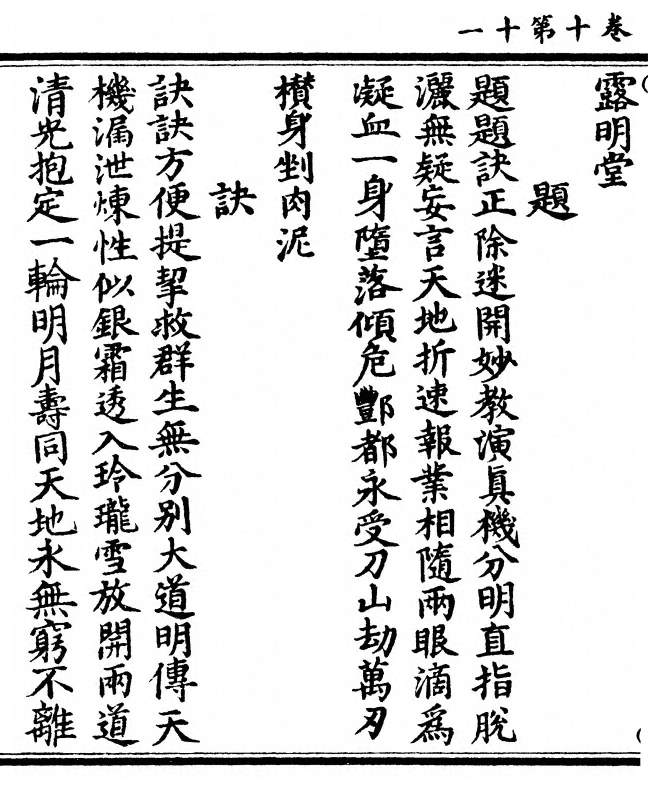 卷十第十一
露明堂
題
題題訣正除迷開妙教演眞機分明直指脫
灑無疑妄言天地折速報業相隨兩眼滴爲
凝血一身墮落傾危酆都永受刀山劫萬刃
攢身剉肉泥
訣
訣訣方便提挈救群生無分别大道明傳天
機漏泄煉性似銀霜透入玲瓏雪放開兩道
清光抱定一輪明月壽同天地永無窮不離